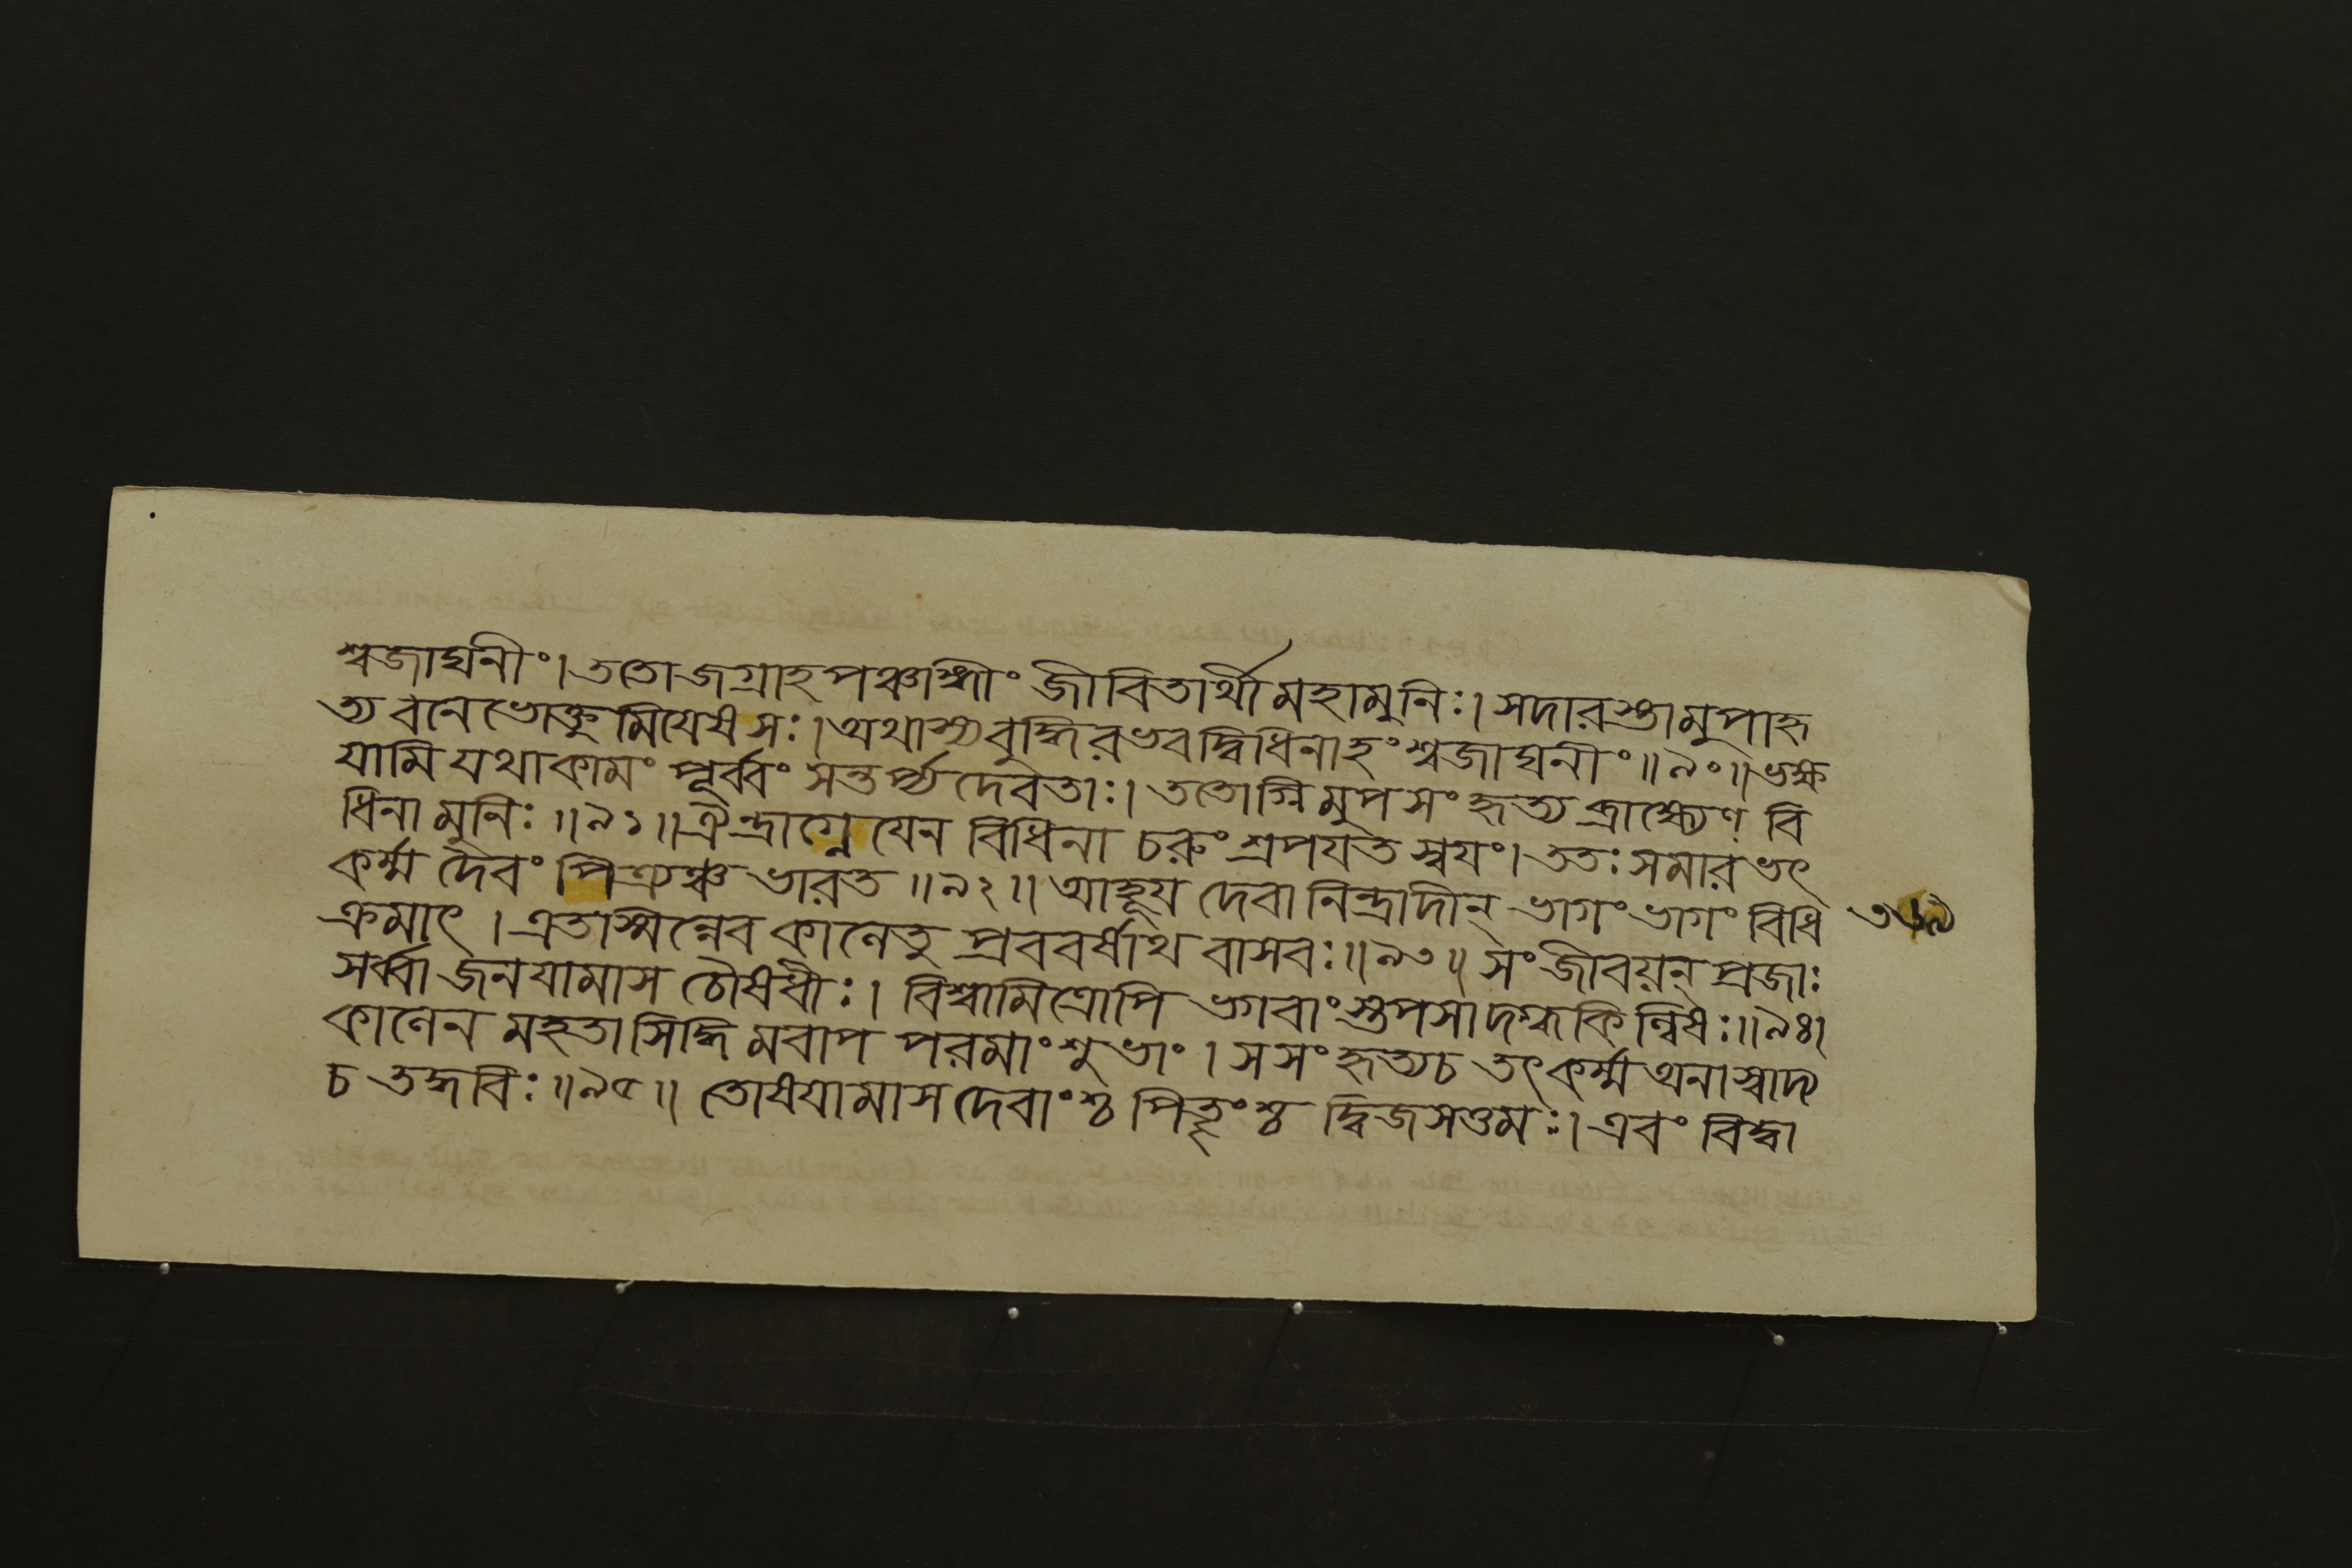 শ্বজাঘনীং। ততো জগ্রাহ পঞ্চাঙ্গীং জীবিতার্থী মহামুনিঃ। সদারস্তামুপাহৃ
ত্য বনে ভোক্তুমিযেষ সঃ। অথাস্য বুদ্ধিরভবদ্বিধিনাহং শ্বজাঘনীং॥৯০॥ ভক্ষ
যামি যথাকামং পূর্ব্বং সন্তর্প্য দেবতাঃ। ততোগ্নিমুপসংহৃত্য ব্রাহ্ম্যেণ বি
ধিনা মুনিঃ॥৯১॥ ঐন্দ্রাগ্নেযেন বিধিনা চরুং শ্রপযত স্বযং। ততঃ সমারভৎ
কর্ম্ম দৈবং পিত্র্যঞ্চ ভারত॥৯২॥ আহূয দেবানিন্দ্রাদীন্ ভাগং ভাগং বিধি
ক্রমাৎ। এতস্মিন্নেব কালেতু প্রববর্ষাথ বাসবঃ॥৯৩॥ সংজীবয়ন্ প্রজাঃ
সর্ব্বা জনযামাস চৌষধীঃ। বিশ্বামিত্রোপি ভগবাংস্তপসা দগ্ধকিল্বিষঃ॥৯৪।
কালেন মহতা সিদ্ধিমবাপ পরমাং শুভাং। স সংহৃত্য চ তৎকর্ম্ম অনাস্বাদ্য
চ তদ্ধবিঃ॥৯৫॥ তোষযামাস দেবাংশ্চ পিতৄংশ্চ দ্বিজসত্তমঃ। এবং বিদ্বা